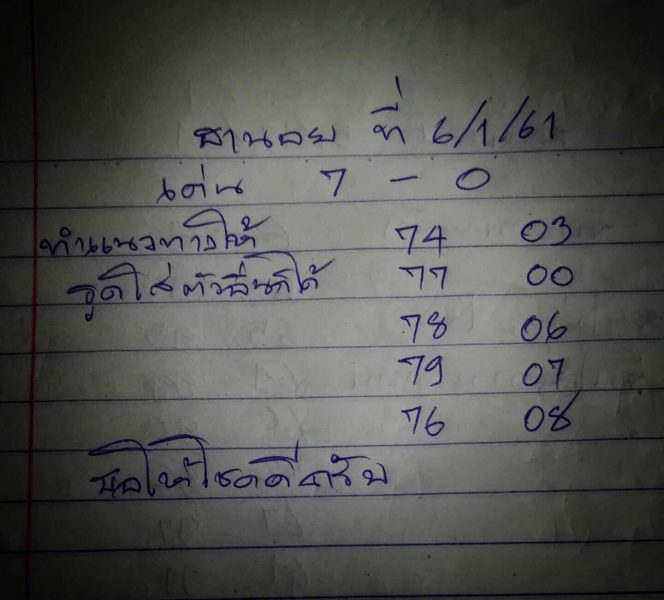 ฮานอย ที่ 6/1/61
เด่น 7 - 0
ทำแนวทางให้ 74 03
รูดใส่ตัวอื่นก็ได้ 77 00
78 06
79 07
76 08
ขอให้โชคดีครับ